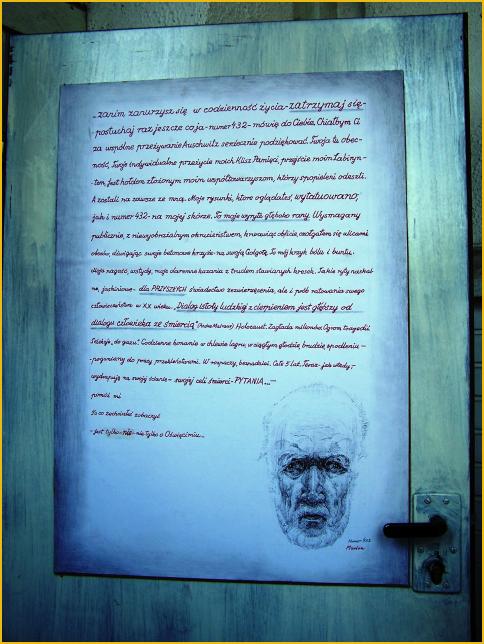 "zanim zanurzysz się w codzienność życia-zatrzymaj się-
-posłuchaj raz jeszcze co ja-numer 432-mówię do Ciebie. Chciałbym Ci
za wspólne przeżywanie Auschwitz serdecznie podziękować. Twoja tu obec-
ność, Twoje indywidualne przeżycie moich Klisz Pamięci, przejście moim Labiryn-
-tem, jest hołdem złożonym moim współtowarzyszom, którzy spopieleni odeszli.
A zostali na zawsze ze mną. Moje rysunki, które oglądałeś, wytatuowano,
jak i numer 432- na mojej skórze. To moje wyryte głęboko rany. Wysmagany
publicznie, z niewyobrażalnym okrucieństwem, krwawiąc obficie, czołgałem się ulicami
obozu, dźwigając swoje betonowe krzyże-na swoją Golgotę. To mój krzyk bólu i buntu.
Moja nagość, wstydy, moje daremne kazania z trudem stawianych kresek. Takie ryty naskal-
ne, jaskiniowe- dla PRZYSZŁYCH świadectwo zezwierzęcenia, ale i prób ratowania swego
człowieczeństwa w XX wieku. „Dialog istoty ludzkiej z cierpieniem jest głębszy od
dialogu człowieka ze śmiercią" (Andre Malraux) Holocaust. Zagłada milionów. Ogrom tragedii.
Selekcje, do gazu! Codzienne konanie w chlewie lagru, w ciągłym głodzie, brudzie, spodleniu-
-poganiany do pracy przekleństwami. W rozpaczy, beznadziei. Całe 5 lat. Teraz-jak wtedy-
wydrapuję na swojej ścianie- swojej celi śmierci-PYTANIA...-
pomóż mi
to co zechciałeś zobaczyć
-jest tylko-nie-nie tylko o Oświęcimiu...
Numer 432
Marian